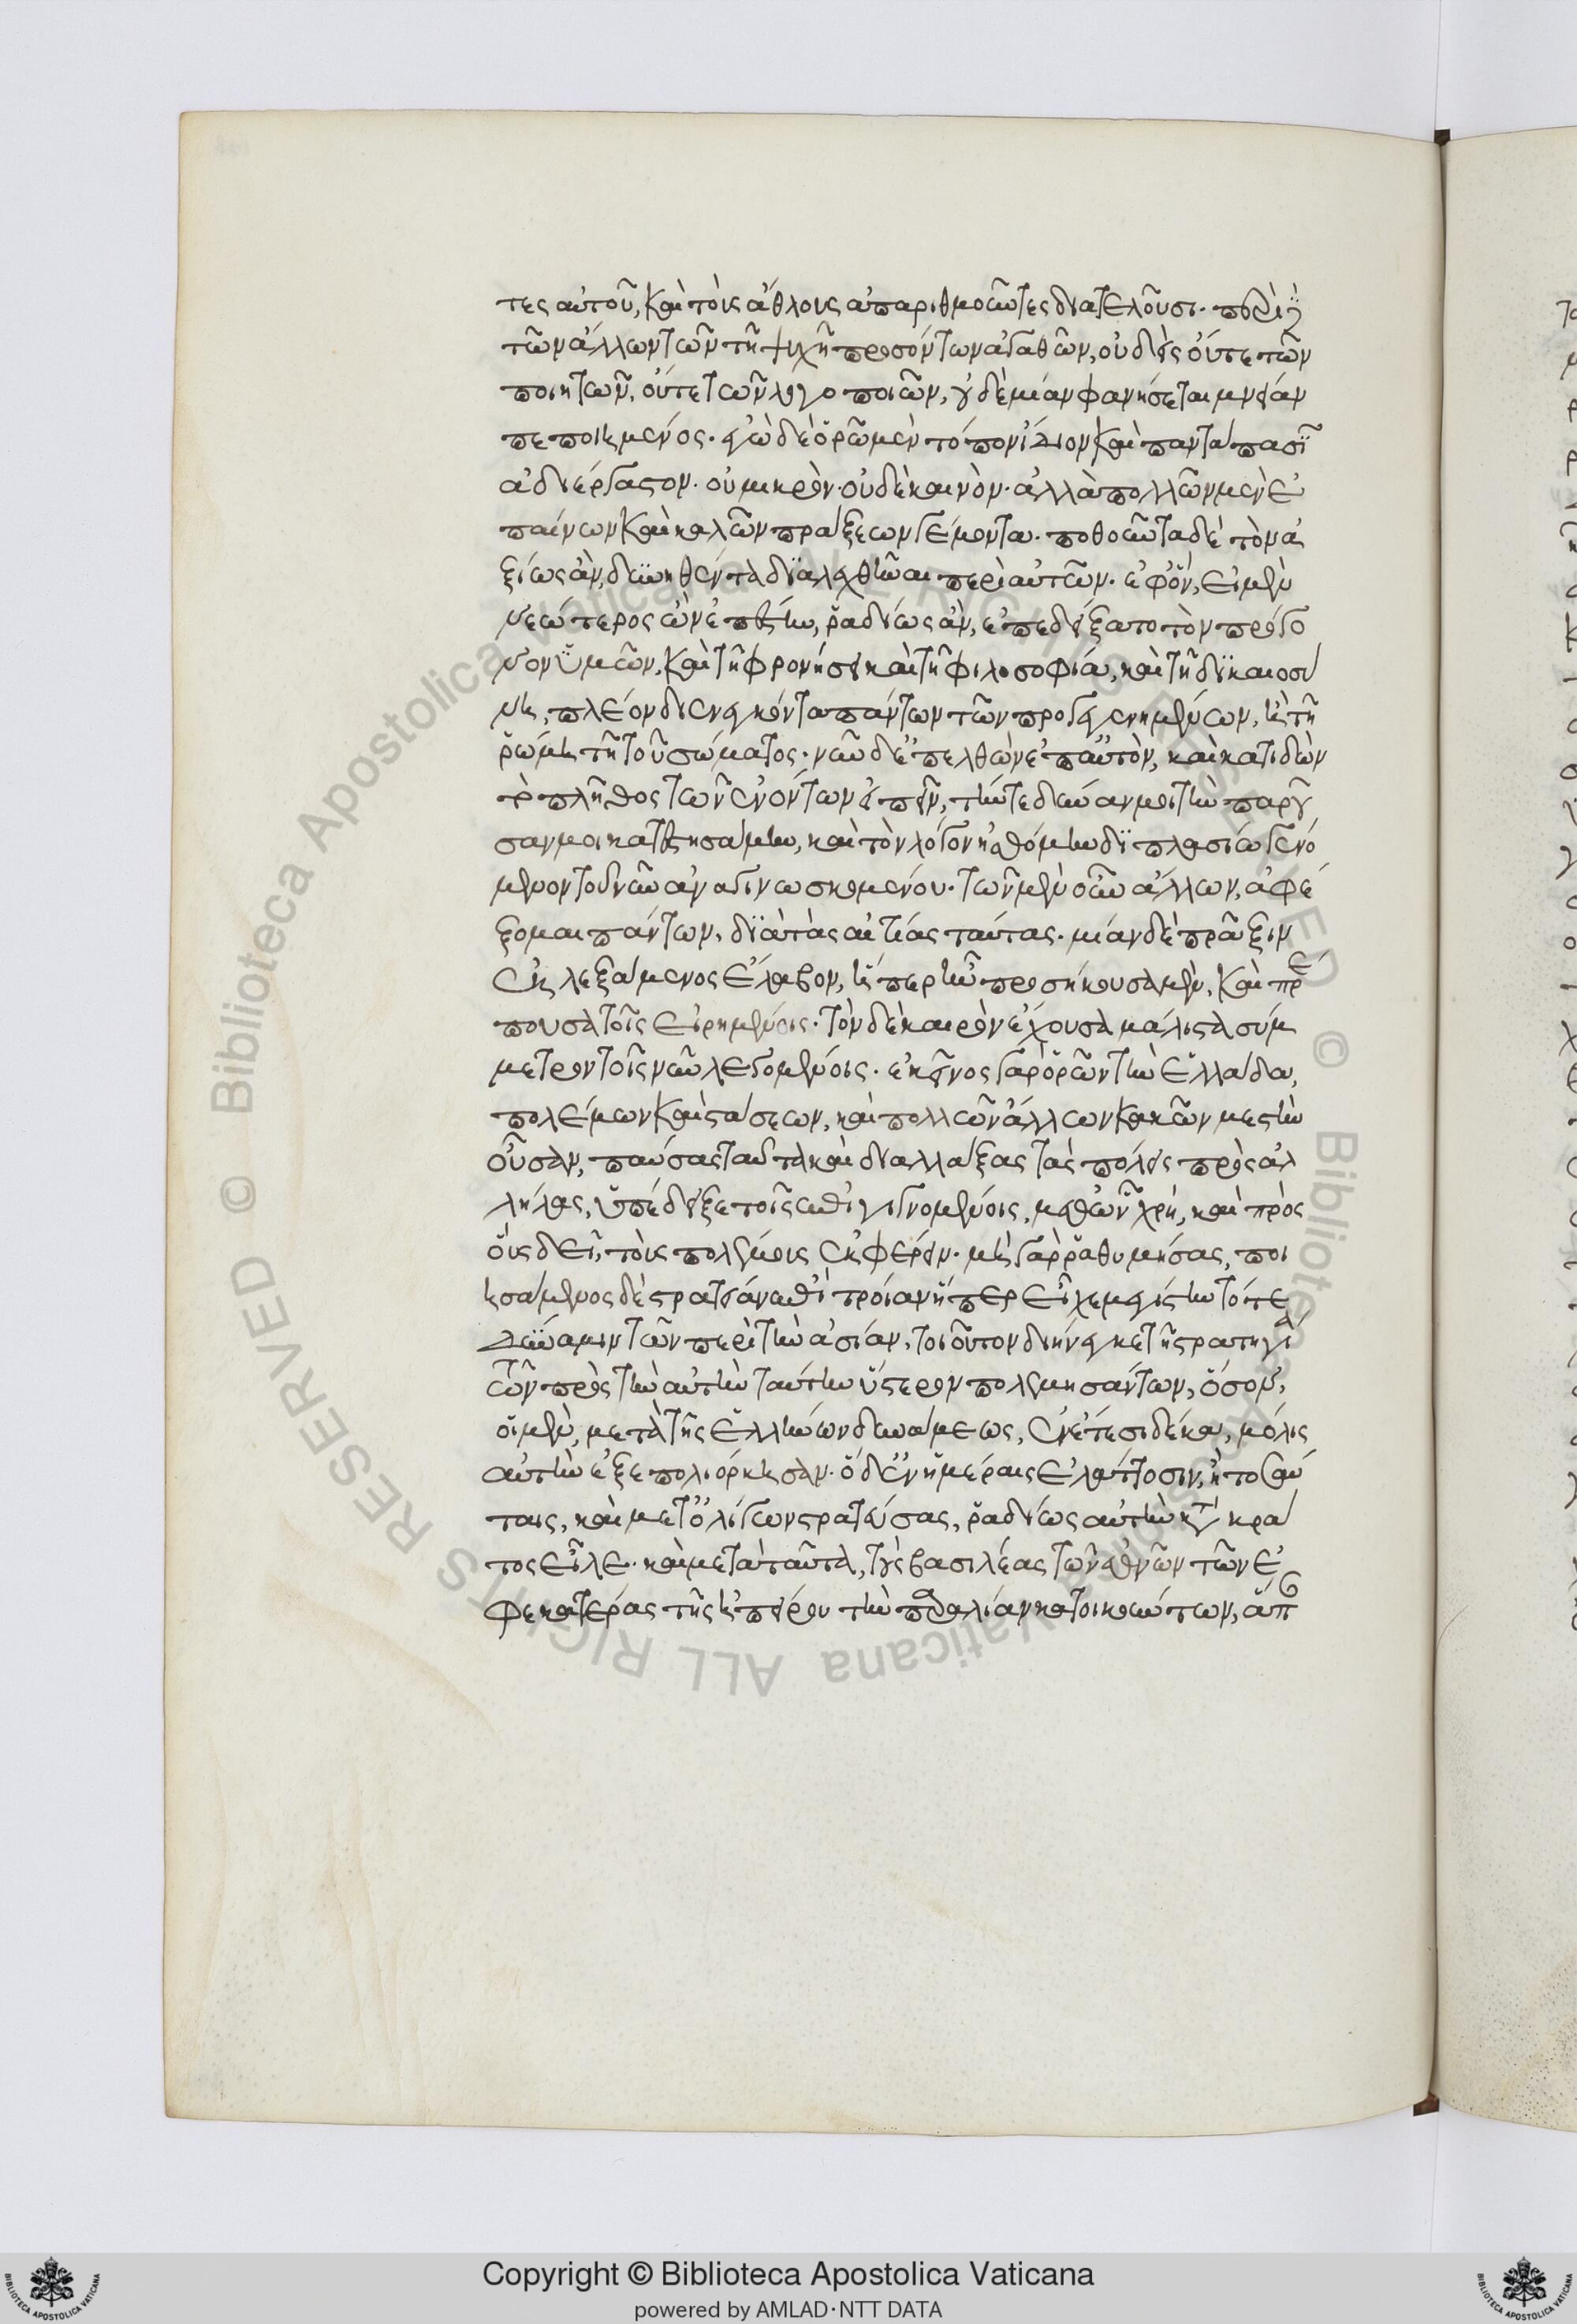 τες αὐτοῦ, καὶ τοὺς ἄθλους ἀπαριθμοῦντες διατελοῦσι· περὶ δὲ
τῶν ἄλλων τῶν τῇ ψυχῇ προσόντων ἀγαθῶν, οὐδεὶς οὔτε τῶν
ποιητῶν, οὔτε τῶν λογοποιῶν, οὐδεμίαν φανήσεται μνείαν
πεποιημένος· ἐγὼ δὲ ὁρῶ μὲν τόπον ἴδιον καὶ πανταπασῒ
ἀδιέργαστον· οὐ μικρὸν· οὐδὲ καινὸν· ἀλλὰ πολλῶν μὲν ἐ
παίνων καὶ καλῶν πράξεων γέμοντα· ποθοῦντα δὲ τὸν ἀ
ξίως ἂν, δυνηθέντα διαλεχθῆναι περὶ αὐτῶν· ἐφ' ὃν, εἰ μὲν
νεώτερος ὢν ἐπέστην, ῥαδίως ἂν, ἐπεδείξατο τὸν πρόγο
νον ὑμῶν, καὶ τῇ φρονήσει καὶ τῇ φιλοσοφία, καὶ τῇ δικαιοσύ
νη, πλέον διενεγκόντα πάντων τῶν προγεγενημένων, ἢ τῇ
ῥώμη τῇ τοῦ σώματος· νῦν δ' ἐπελθὼν ἐπ' αὐτὸν, καὶ κατιδὼν
τὸ πλῆθος τῶν ἐνόντων εἰπεῖν, τήν τε δύναμίν μοι τὴν παροῦ
σαν μοι κατεμεμψάμην, καὶ τὸν λόγον ἠσθόμην διπλασίω γενό
μενον τοῦ νῦν ἀναγινωσκομένου· τῶν μὲν οὖν ἄλλων, ἀφέ
ξομαι πάντων, διὰ τὰς αἰτίας ταύτας· μίαν δὲ πρᾶξιν
ἐκλεξάμενος ἔλαβον, ἥπερ ἦν προσήκουσα μὲν, καὶ πρέ
πουσα τοῖς εἰρημένοις· τὸν δὲ καιρὸν ἔχουσα μάλιστα σύμ
μετρον τοῖς νῦν λεγομένοις· ἐκεῖνος γὰρ ὁρῶν τὴν ἑλλάδα,
πολέμων καὶ στάσεων, καὶ πολλῶν ἄλλων κακῶν μεστὴν
οὖσαν, παύσας ταῦτα καὶ διαλλάξας τὰς πόλεις πρὸς ἀλ
λήλας, ὑπέδειξε τοῖς ἐπιγιγνομένοις, μεθ' ὧν χρὴ, καὶ πρὸς
οὓς δεῖ, τοὺς πολέμους ἐκφέρειν· μὴ γὰρ ῥαθυμήσας, ποι
ησάμενος δὲ στρατείαν ἐπὶ τροίαν ἥπερ εἶχε μεγίστην τότε
δύναμιν τῶν περὶ τὴν ἀσίαν, τοιοῦτον διήνεγκε τῇ στρατηγία
τῶν πρὸς τὴν αὐτὴν ταύτην ὕστερον πολεμησάντων, ὅσον,
οἱ μὲν, μετὰ τῆς ἑλλήνων δυνάμεως, ἐν ἔτεσι δέκα, μόλις
αὐτὴν ἐξεπολιόρκησαν· ὁ δ' ἐν ἡμέραις ἐλάττοσιν, ἢ τοσαύ
ταις, καὶ μετ' ὀλίγων στρατεύσας, ῥαδίως αὐτὴν κατὰ κρά
τος εἷλε· καὶ μετὰ ταῦτα, τοὺς βασιλέας τῶν ἐθνῶν τῶν ἐ
φ' ἑκατέρας τῆς ἠπείρου τὴν παραλίαν κατοικούντων, ἅπ